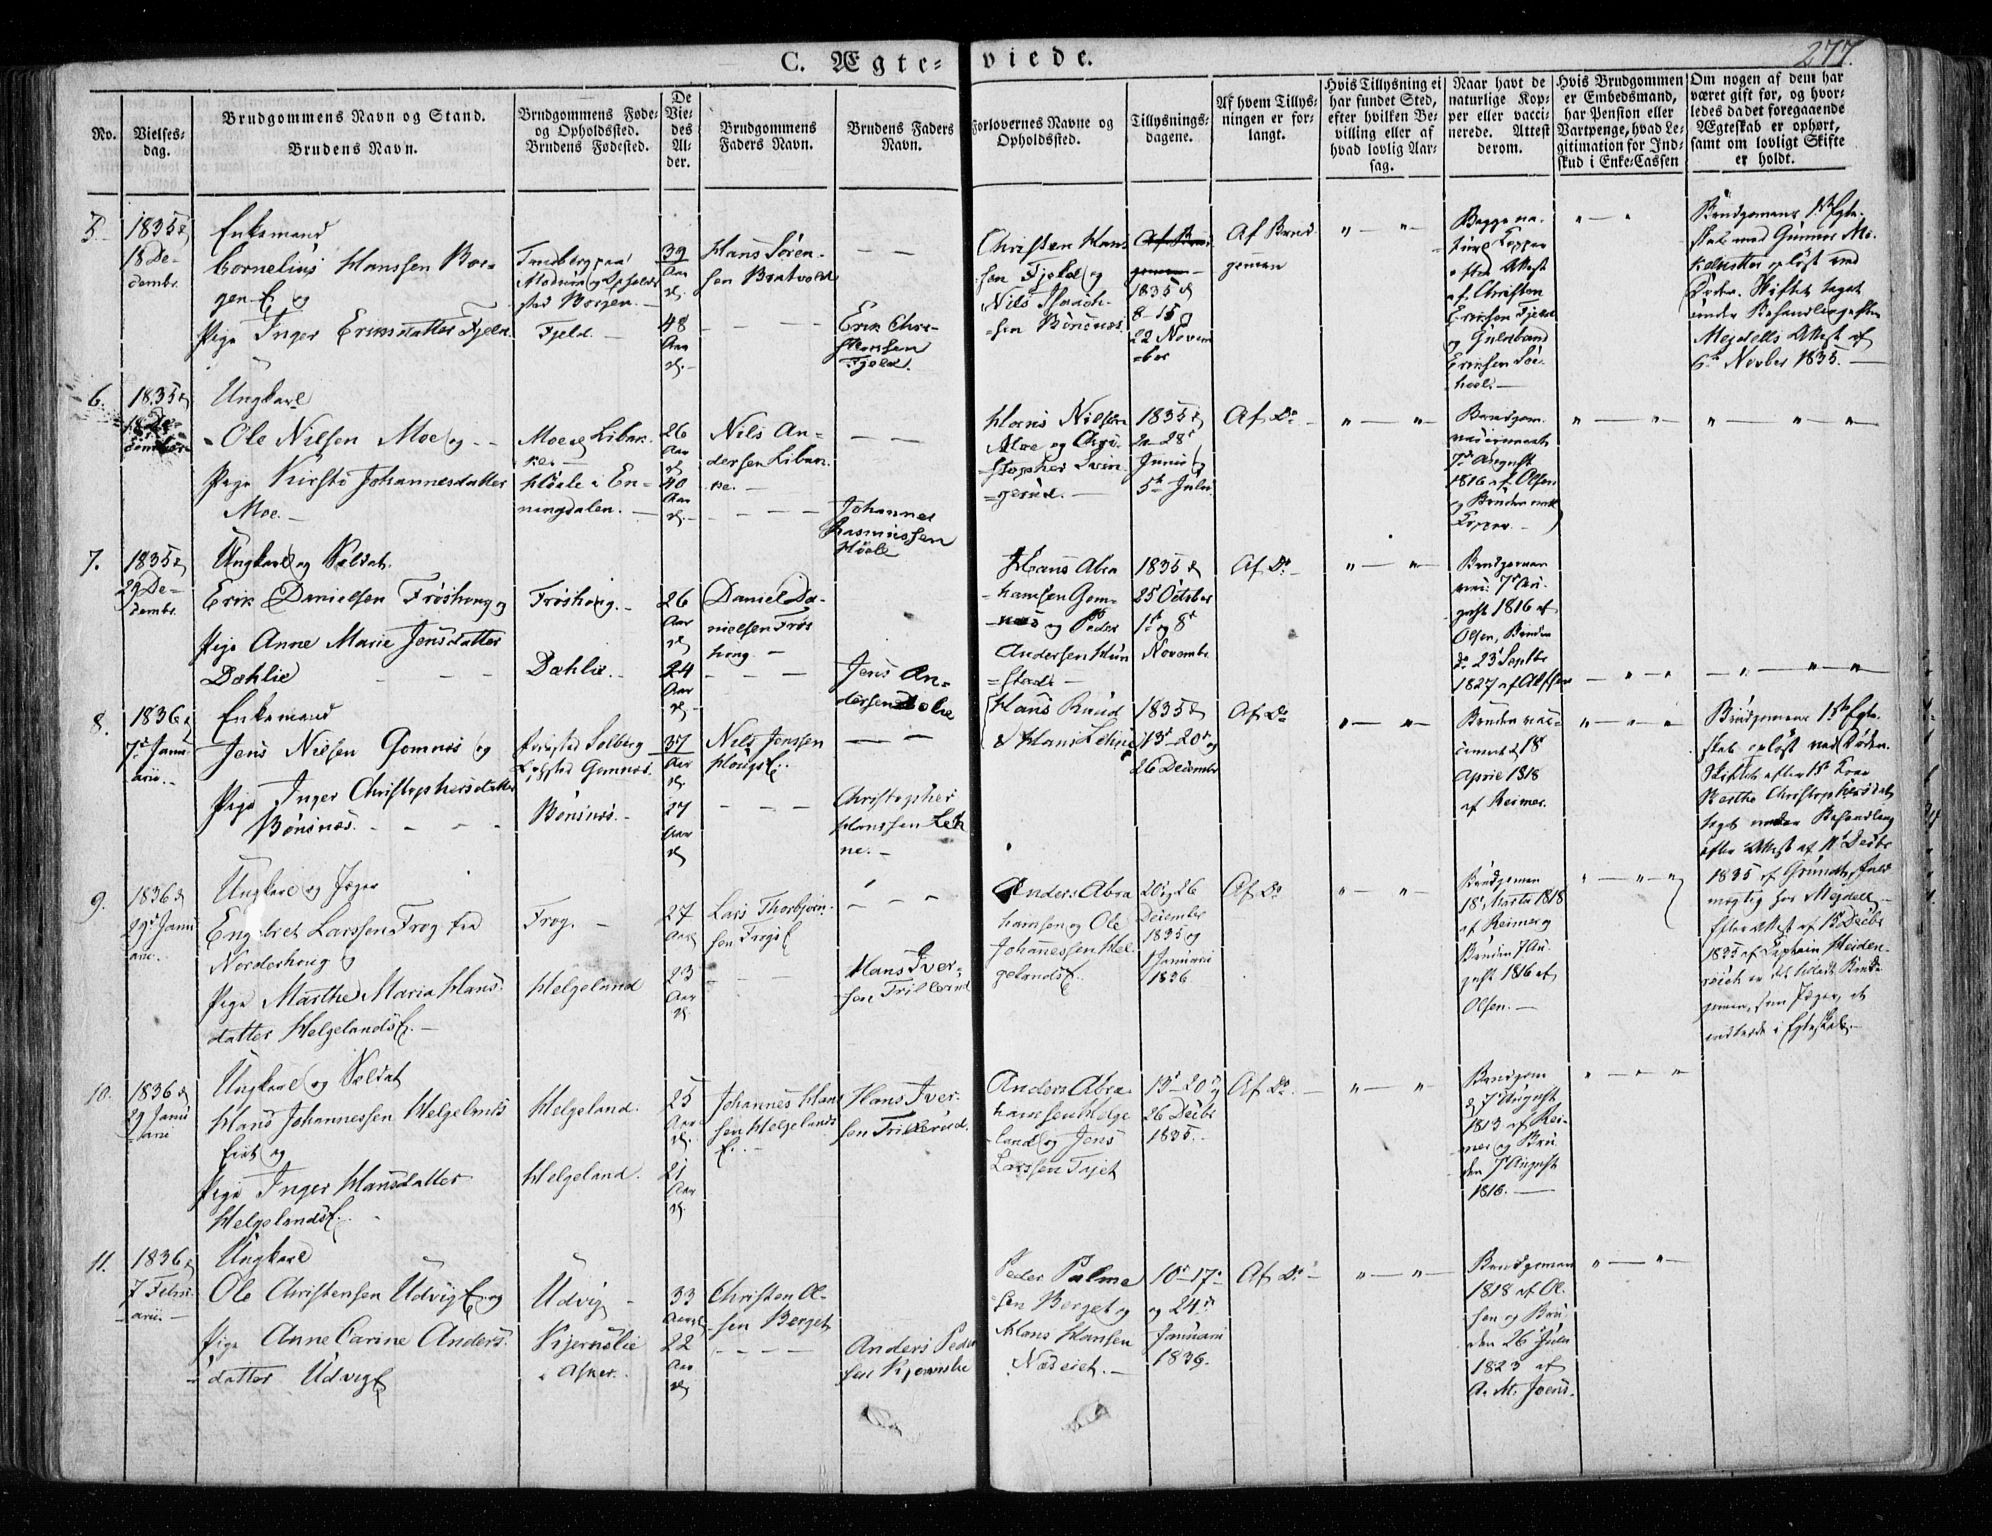 277.
C. Ægte-viede.
No.
Vielses-
dag.
Brudgommens Navn og Stand.
Brudens Navn.
Brudgommens Føde-
og Opholdssted.
Brudens Fødested.
De
Vie-
des
Al-
der.
Brudgommens
Faders Navn.
Brudens Faders
Navn.
Forlovernes Navne og
Opholdssted.
Tillysnings-
dagene.
Af hvem Tillys-
ningen er for-
langt.
Hvis Tillysning ei
har fundet Sted,
efter hvilken Be-
villing eller af
hvad lovlig Aar-
sag.
Naar havt de
naturlige Kop-
per eller vacci-
nerede. Attest
derom.
Hvis Brudgommen
er Embedsmand,
har Pension eller
Vartpenge, hvad Le-
gitimation for Ind-
skud i Enke-Cassen
Om nogen af dem har
været gift før, og hvor-
ledes da det foregaaende
Ægteskab er ophørt,
samt om lovligt Skifte
er holdt.
5.
1835
18 De-
cembr.
Enkemand
Cornelius Hanssen Bor-
gen E. og
Pige Inger Eriksdatter Fjeld.
Modum og Opholds
sted Borgen.
Fjeld.
39
Aar
48
Aar
Hans Søren-
sen Bratvold
Erik Chri-
stensen
Fjeld.
Christen Hans
sen Fjeld og
Nils
sen Bønsnæs.
1835
8-15 og
22 Novem
ber
Af Brud
gomen
Begge na-
turl. Kopper
efter Attest
af Christen
Eriksen Fjeld
og Gulbrand
Eriksen
Brudgomens 1ste Egte-
skab med Gunner Mi-
kelsdatter opløst ved
Døden. Skiftet taget
under Behandling efter
Mejdells Attest af
6te Novber 1835.
6.
1835
18 De-
cember
Ungkarl
Ole Nilsen Moe og
Pige Kirsti Johannesdatter
Moe.
Moe
Høæle i En-
ningdalen.
26
Aar
40
Aar
Nils An-
dersen
Johannes
Rasmussen
Høæle
Hans Nilsen
Moe og Chri-
stopher Svin-
gerud.
1835
28
Junii og
5te Julii
Af Do
Brudgom.
vaccineret
7de August
1816 af Olsen
og Bruden nat.
Kopper.
7.
1835
29 De-
cembr.
Ungkarl og Soldat.
Erik Danielsen Frøshoug og
Pige Anne Marie Jensdatter
Dæhlie
Frøshoug.
Dæhlie.
26
Aar
24
Aar
Daniel Da-
nielsen Frøs
houg.
Jens An-
dersen Dælie
Hans Abra
hamsen Gom-
næs og Peder
Andersen Hun
stad.
1835
25 October
1te og 8de
Novembr.
Af Do
Brudgomen
vac. 7de Au-
gust 1816 af
Olsen, Bruden
d. 23 Septbr
1827 af Alfsen
8.
1836
7de Janu
arii.
Enkemand
Jens Nilsen Gomnæs og
Pige Inger Christophersdatter
Bønsnæs.
Fødested Solberg
Opholdssted Gomnæs.
Bønsnæs.
37
Aar
27
Aar
Nils Jenssen
Hougs E.
Christopher
Hanssen Leh
ne.
Hans Ruud
& Hans Lehne
1835
13de 20de og
26 December
Af Do
Bruden vac-
cineret d. 18
April 1818
af Reimer.
Brudgomens 1ste Egte-
skab opløst ved Døden.
Skiftet efter 1ste Kone
Berthe Christophersdat.
taget under Behandling
efter Attest af 11te Decbr
1835 af Grundt, Fuld-
mægtig hos Mejdell.
9.
1836
29de Janu
arii.
Ungkarl og Jæger
Engebret Larssen Frog fra
Norderhoug og
Pige Marthe Maria Hans-
datter Helgelands E.
Frog.
Helgeland
27
Aar
23
Aar
Lars Thorbjørn-
sen Frogs E.
Hans Iver-
sen Trillerud
Anders Abra
hamsen og Ole
Johannessen Hel-
gelands E.
20 og 26
December
1835 og
1 Januarii
1836
Af Do
Brudgoman
18de Marts 1818
af Reimer og
Bruden 7 Au-
gust 1816 af
Olsen.
Efter Attest af 15de Decbr
1835 af Captain Heiden-
reich er det tilladt Brud-
gomen, som Jæger, at
indtræde i Egteskab.
10.
1836
29 Janu
arii
Ungkarl og Soldat
Hans Johannessen Helgelands
Eiet og
Pige Inger Hansdatter
Helgelands E.
Helgeland.
Helgeland.
25
Aar
21
Aar
Johannes Han
sen Helgelands
E.
Hans Iver-
sen Trillerud.
Anders Abra
hamsen Helge
land og Jens
Larssen Fjet
13de 20de og
26 Decbr
1835.
Af Do
Brudgom
d. 7de August
1813 af Rei-
mer og Bru
den 7de August
1816.
11.
1836
7 Febru-
arii.
Ungkarl
Ole Christensen Udvigs E. og
Pige Anne Carine Anders-
datter Udvigs E.
Udvig
Kjernslie
i Asker.
33
Aar
22
Aar
Christen Ol-
sen Berget
Anders Peder
sen Kjernslie
Peder Palme
sen Berget og
Hans Hansen
Næseiet.
10de 17de
og 24de
Januarii
1836.
Af Do
Brudgoman
1818 af Ol-
sen og Bru
den 26 Julii
1823 af
A. M. Joens.